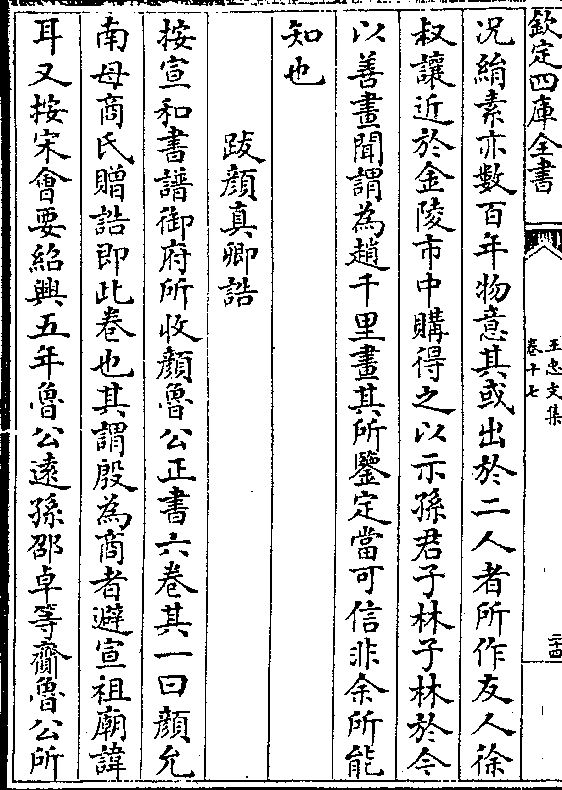 欽定四庫全書
王忠文集
卷十七
二十四
况絹素亦數百年物意其或出於二人者所作友人徐
叔讓近於金陵市中購得之以示孫君子林子林於今
以善畫聞謂為趙千里畫其所鑒定當可信非余所能
知也
跋顔真卿誥
按宣和書譜御府所收顔魯公正書六卷其一曰顔允
南母商氏贈誥即此卷也其謂殷為商者避宣祖廟諱
耳又按宋會要紹興五年魯公遠孫邵卓等齎魯公所